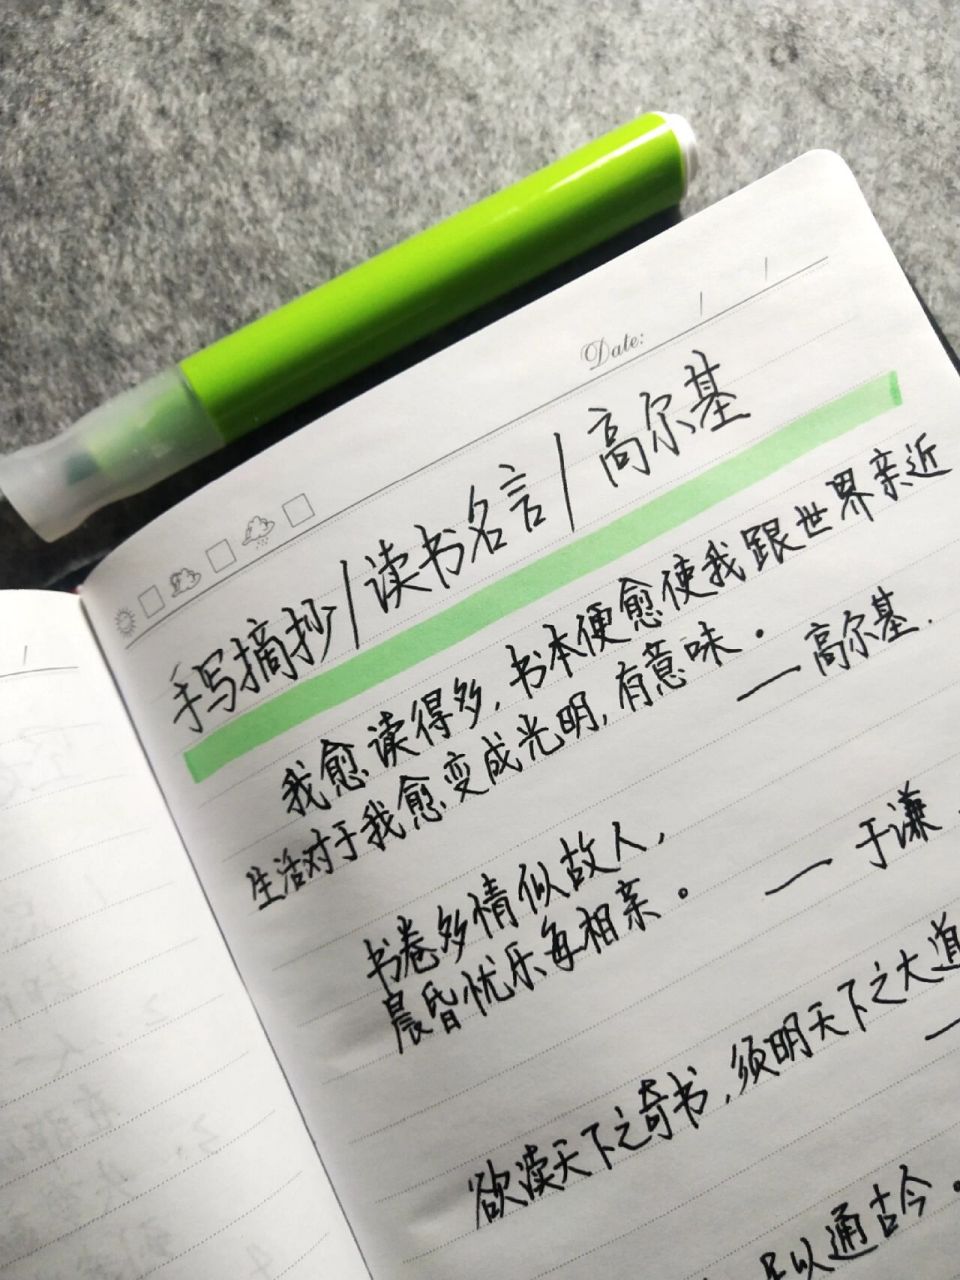 Date:
手写摘抄/读书名言/高尔基
我愈读得多,书本便愈使我跟世界亲近
生活对于我愈变成光明,有意味。
——高尔基.
书卷多情似故人,
晨昏忧乐每相亲。
——于谦.
欲渎天下之奇书,须明天下之大道
足以通古今。